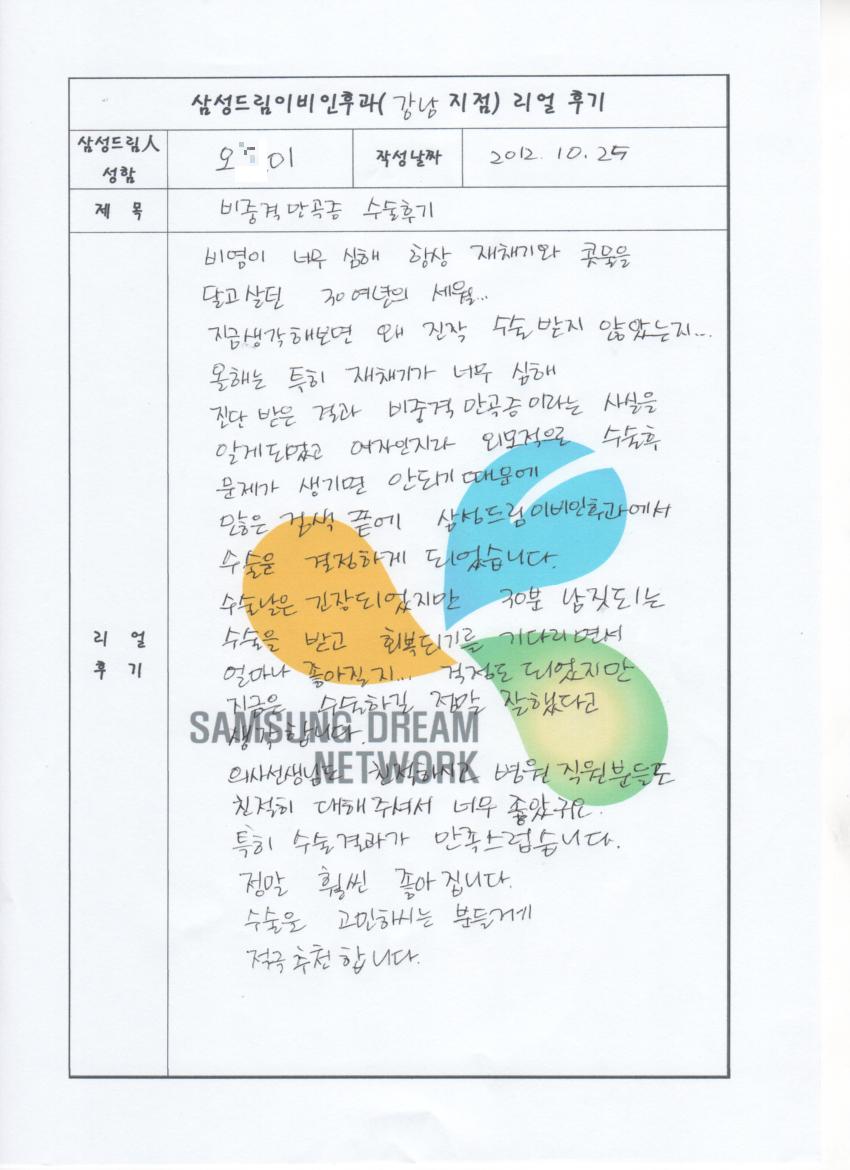 삼성드림이비인후과( 강남 지점) 리얼 후기
삼성드림人 성함
오 미
작성날짜
2012. 10. 25
제 목
비중격만곡증 수술후기
리 얼 후 기
비염이 너무 심해 항상 재채기와 콧물을
달고 살던 30여년의 세월...
지금생각해보면 왜 진작 수술 받지 않았는지...
올해는 특히 재채기가 너무 심해
진단 받은 결과 비중격 만곡증이라는 사실을
알게되었고 여자인지라 외모적으로 수술후
문제가 생기면 안되기 때문에
많은 검색 끝에 삼성드림이비인후과에서
수술을 결정하게 되었습니다.
수술날은 긴장되었지만 30분 남짓되는
수술을 받고 회복되기를 기다리면서
얼마나 좋아질지... 걱정도 되었지만
지금은 수술하길 정말 잘했다고
생각합니다.
의사선생님도 친절하시고 병원 직원분들도
친절히 대해주셔서 너무 좋았구요.
특히 수술결과가 만족스럽습니다.
정말 훨씬 좋아집니다.
수술을 고민하시는 분들게
적극추천합니다.
SAMSUNG DREAM
NETWORK